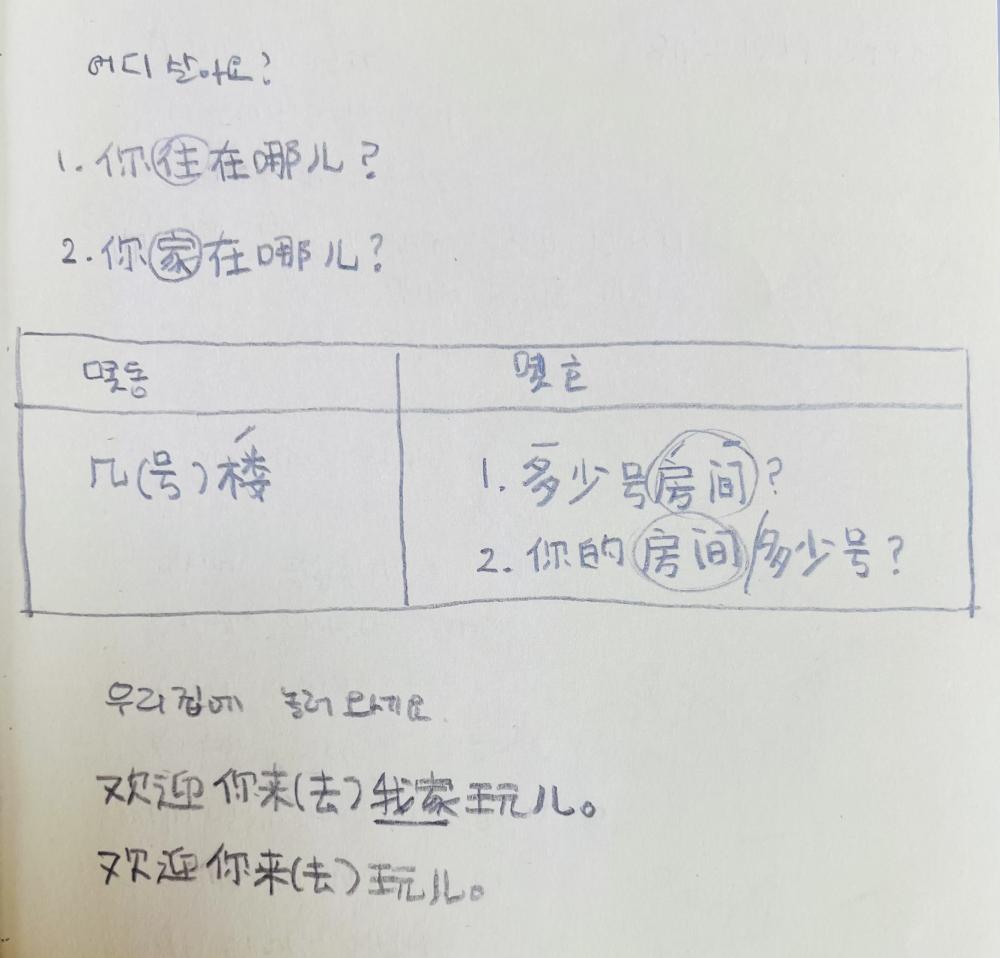 어디 살아요?
1. 你住在哪儿?
2. 你家在哪儿?
몇동
몇호
几(号)楼
1. 多少号房间?
2. 你的房间/多少号?
우리집에 놀러 오세요.
欢迎你来(去)我家玩儿。
欢迎你来(去)玩儿。